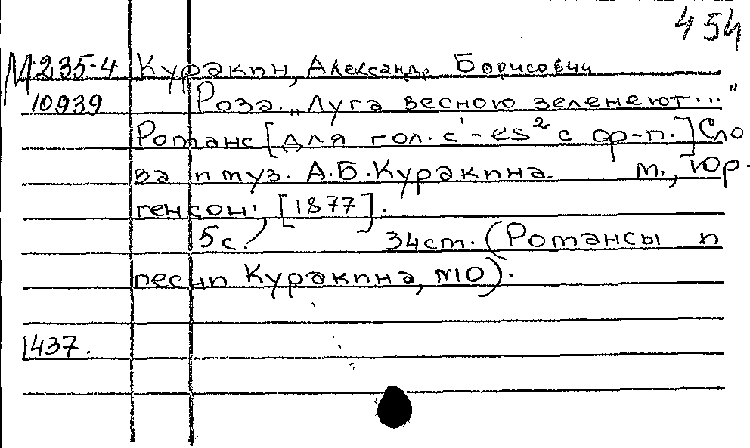 454
М 235-4 Куракин, Александр Борисович
10939 Роза. „Луга весною зеленеют..."
Романс [для гол. c¹-es² с ф-п.] Сло
ва и муз. А.Б.Куракина. М., Юр.
генсон, [1877].
5с. 34см. (Романсы и
песни Куракина, №10).
1437.